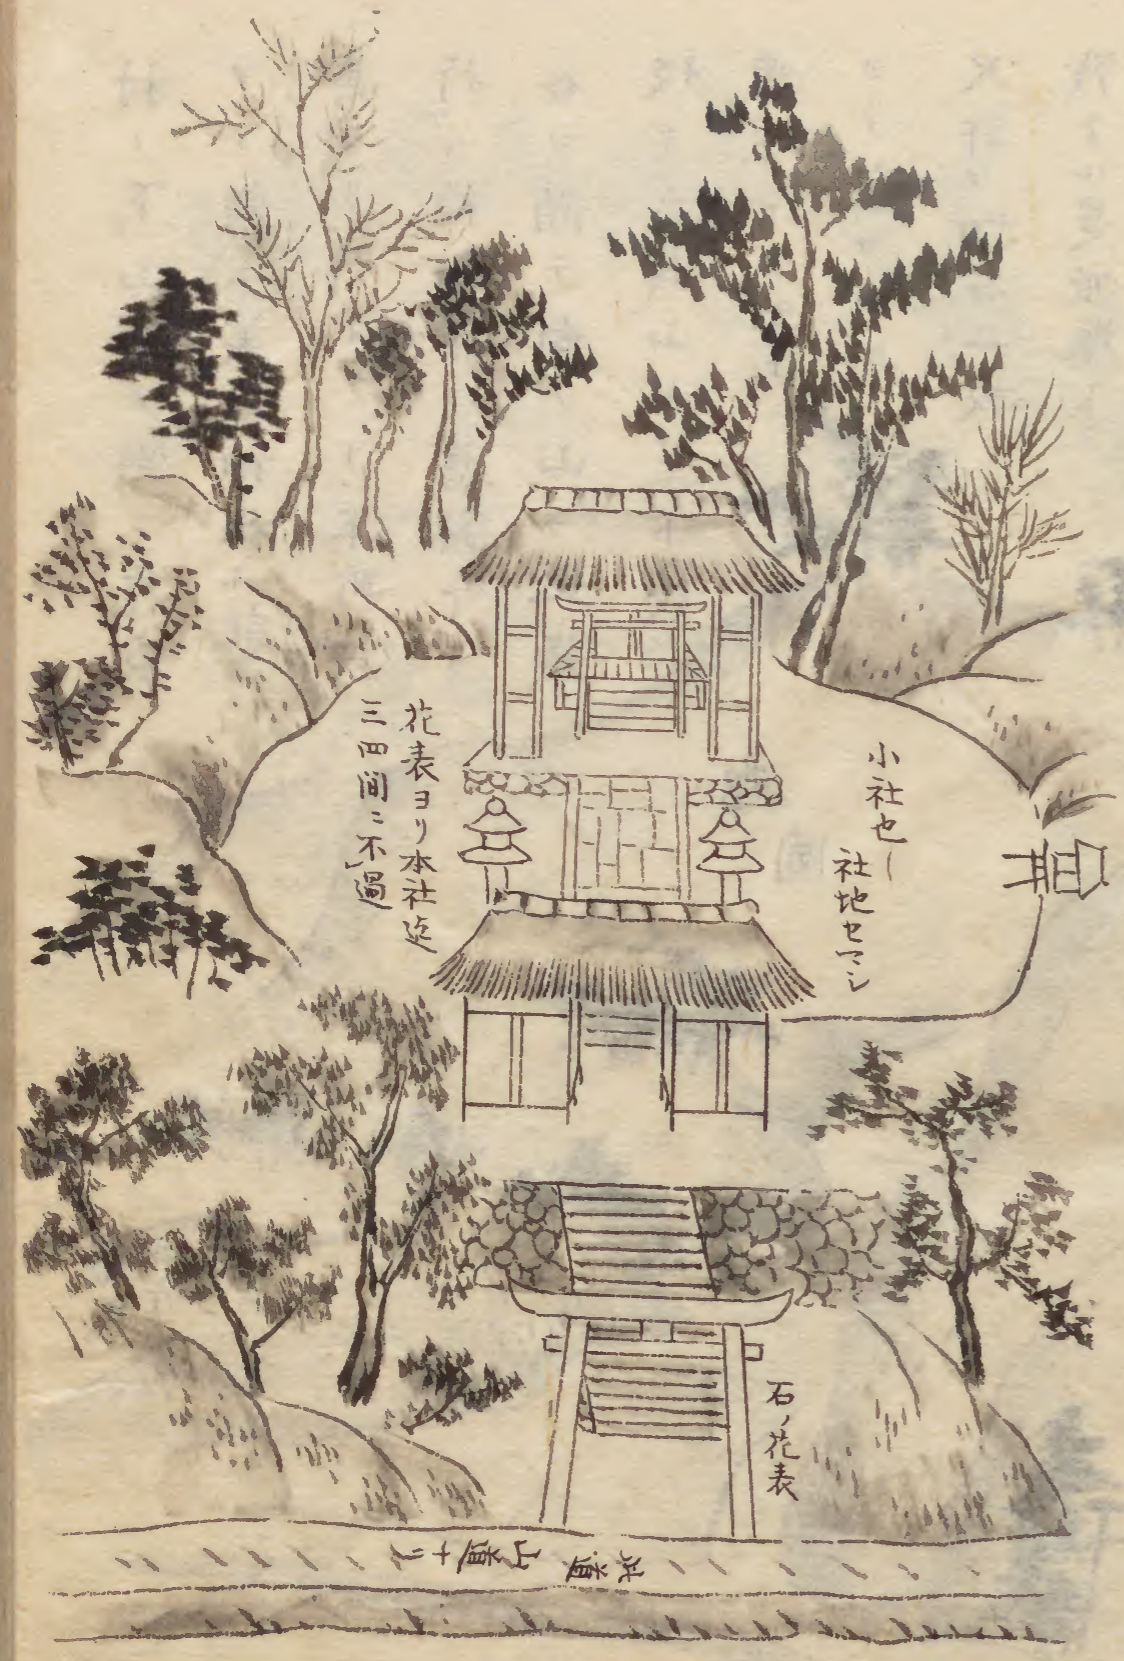 小社也
社地セマシ
花表ヨリ本社迄
三四間ニ不過
石ノ花表
此道
山道ナリ